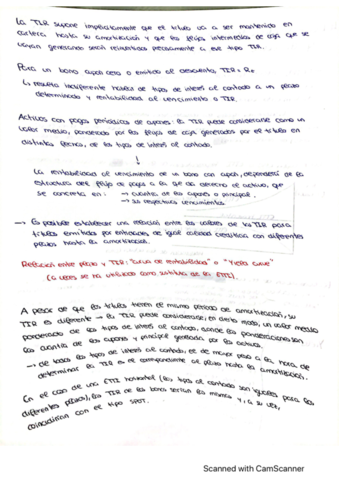 La TIR supone implícitamente que el título va a ser mantenido en
cartera hasta su amortización y que los flujos intermedios de caja que se
vayan generando serán reinvertidos precisamente a ese tipo TIR.
Para un bono cupón cero o emitido al descuento, TIR = Rt
↳ resulta indiferente hablar de tipos de interés al contado a un plazo
determinado y rentabilidad al vencimiento o TIR.
Activos con pagos periódicos de cupones: la TIR puede considerarse como un
valor medio, ponderado por los flujos de caja generados por el título en
distintas fechas, de los tipos de interés al contado.
↓
La rentabilidad al vencimiento de un bono con cupón, dependerá de la
estructura del flujo de pagos a la que da derecho el activo, que
se concreta en: → cuantía de los cupones o principal.
→ sus respectivos vencimientos
→ Es posible establecer una relación entre los valores de las TIR para
títulos emitidos por entidades de igual calidad crediticia con diferentes
plazos hasta la amortización.
Relación entre plazo y TIR: "curva de rentabilidades" o "Yield curve"
(a veces se ha utilizado como sustituta de la ETTI).
A pesar de que los títulos tienen el mismo período de amortización, su
TIR es diferente → la TIR puede considerarse, en cierto modo, un valor medio
ponderado de los tipos de interés al contado, donde las ponderaciones son
la cuantía de los cupones y principal generada por los activos.
→ de todos los tipos de interés al contado, el de mayor peso a la hora de
determinar la TIR es el correspondiente al plazo hasta la amortización.
En el caso de una ETTI horizontal (los tipos al contado son iguales para los
diferentes plazos), las TIR de los bonos serían las mismas y, a su vez,
coincidirían con el tipo SPOT.
Scanned with CamScanner